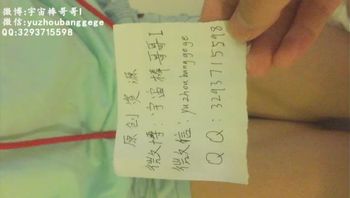 微博:宇宙棒哥哥I
微信:yuzhoubanggege
QQ:3293715598
原创资源
微博:宇宙棒哥哥I
微信:yuzhoubanggege
QQ:3293715598